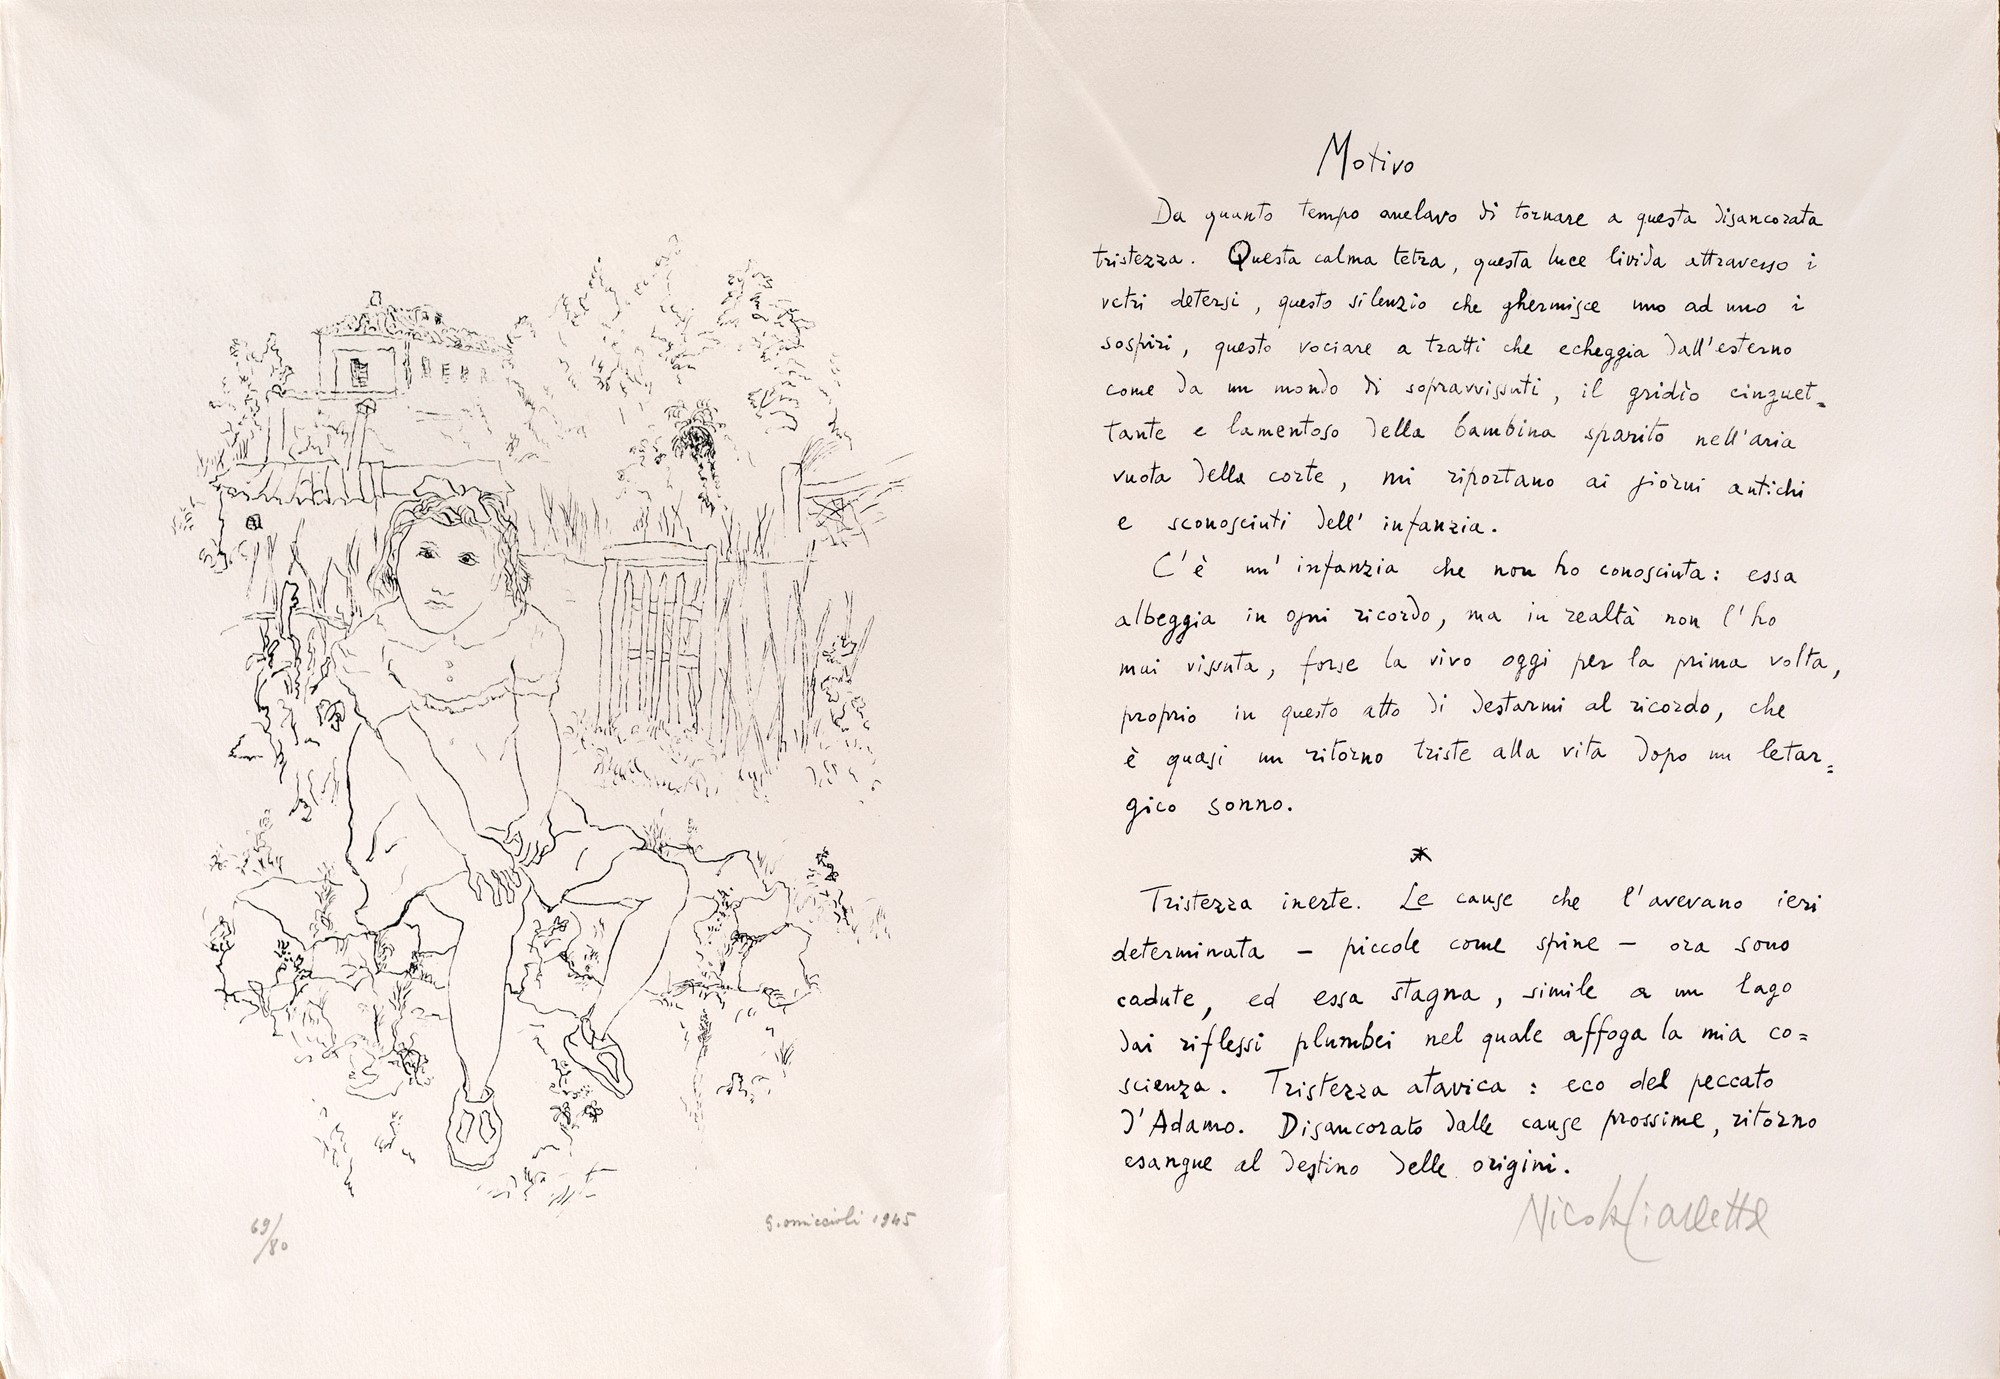 Motivo
Da quanto tempo anelavo di tornare a questa disancorata
tristezza. Questa calma tetra, questa luce livida attraverso i
vetri detersi, questo silenzio che ghermisce uno ad uno i
sospiri, questo vociare a tratti che echeggia dall'esterno
come da un mondo di sopravvissuti, il gridìo cinguet=
tante e lamentoso della bambina sparito nell'aria
vuota della corte, mi riportano ai giorni antichi
e sconosciuti dell' infanzia.
C'è un' infanzia che non ho conosciuta: essa
albeggia in ogni ricordo, ma in realtà non l'ho
mai vissuta, forse la vivo oggi per la prima volta,
proprio in questo atto di destarmi al ricordo, che
è quasi un ritorno triste alla vita dopo un letar=
gico sonno.
*
Tristezza inerte. Le cause che l'avevano ieri
determinata – piccole come spine – ora sono
cadute, ed essa stagna, simile a un lago
dai riflessi plumbei nel quale affoga la mia co=
scienza. Tristezza atavica: eco del peccato
d'Adamo. Disancorato dalle cause prossime, ritorno
esangue al destino delle origini.
Nicola Ciarletta
69/80
G. omiccioli 1945